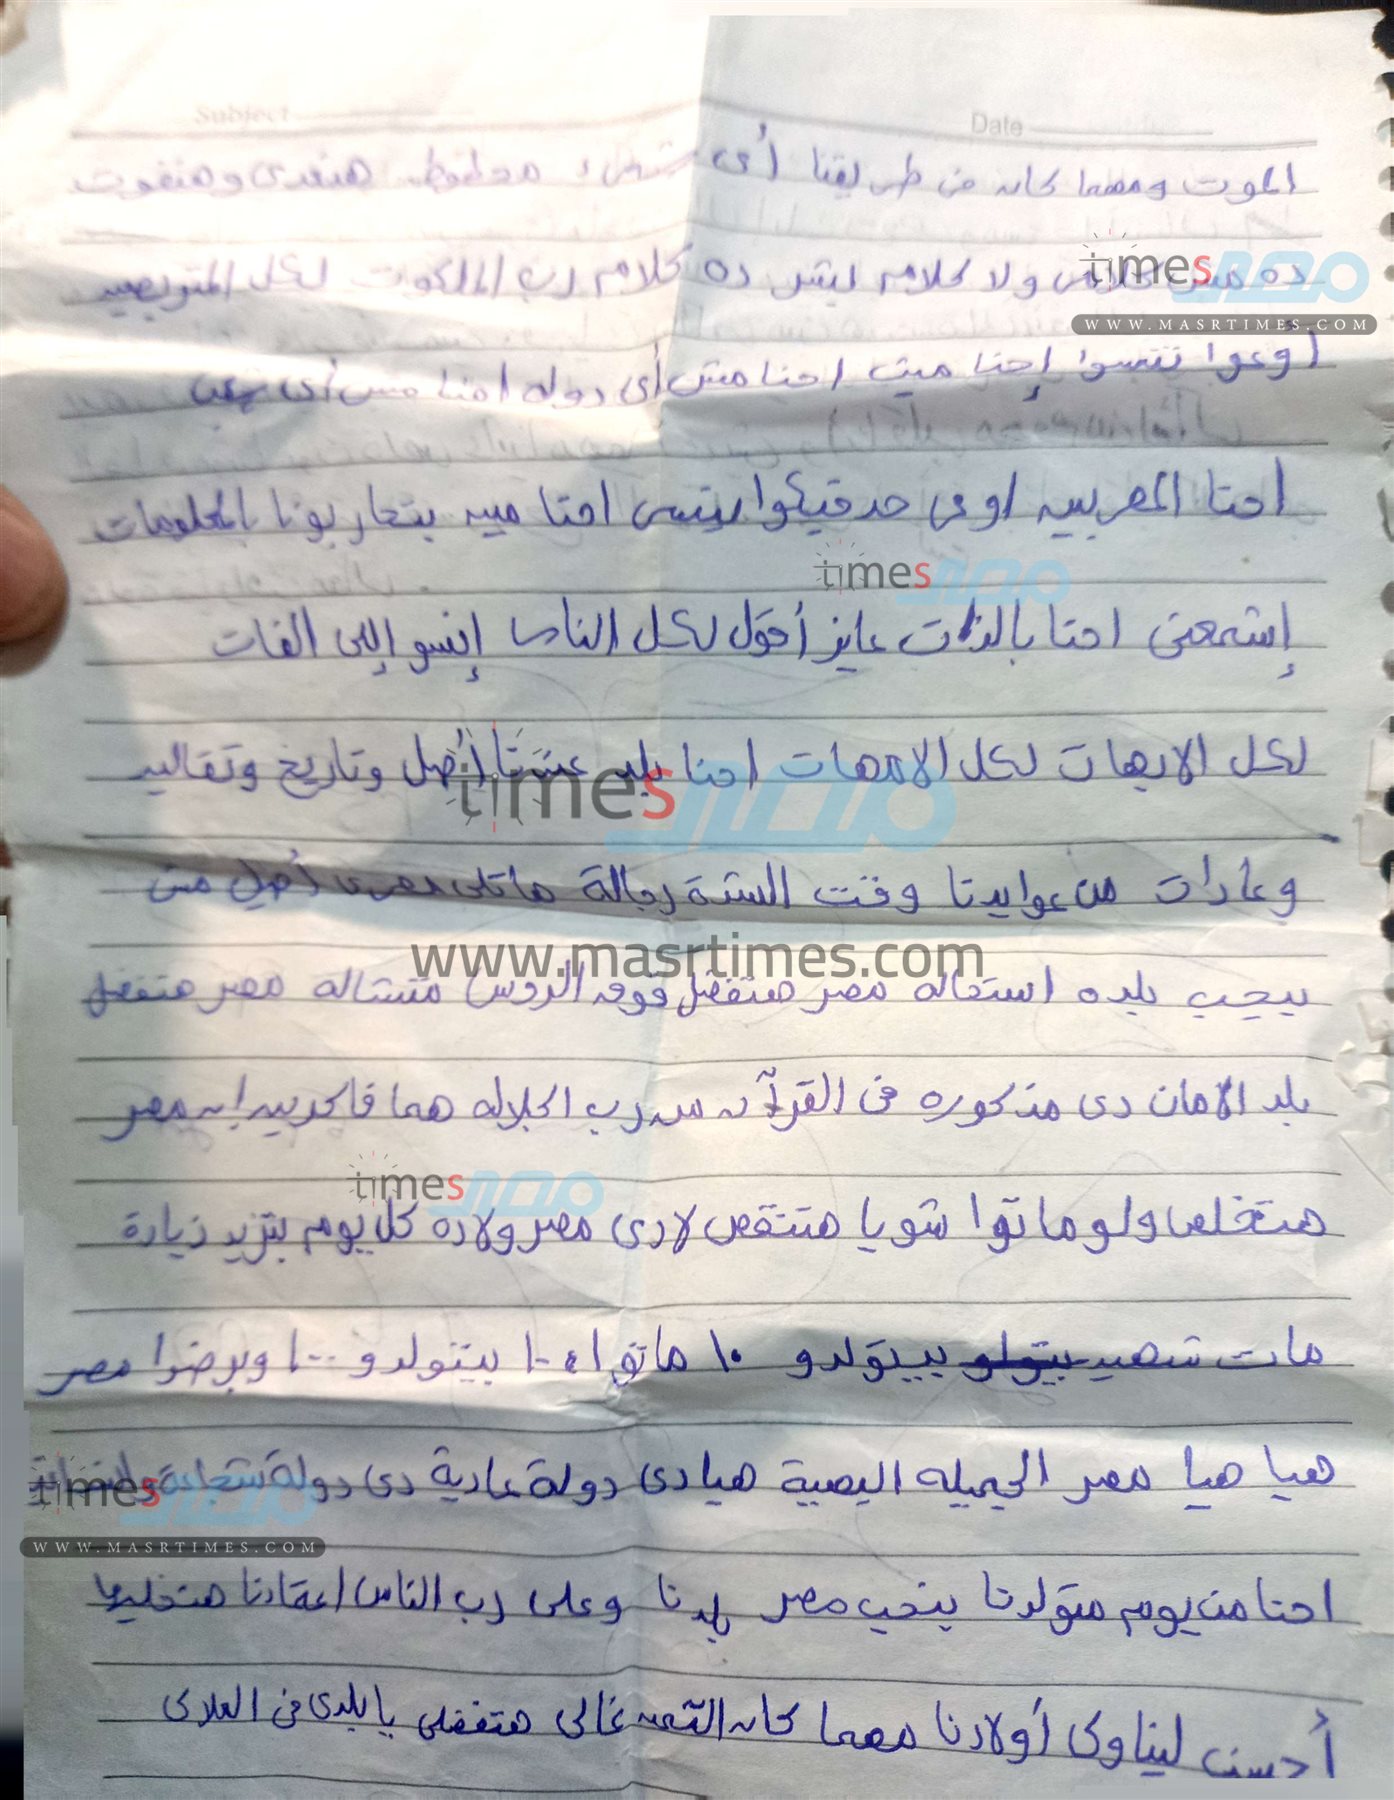 Subject
Date
الموت ومهما كان فى طريقنا أى شىء محظوظ هنعدى وهنفوت
ده مش كلامى ولا كلام بشر ده كلام رب الملكوت لكل المتربصين
أوعوا تنسوا إحنا مين احنا مش أى دوله احنا مش أى شعب
احنا المصريين اوعى حد فيكوا ينسى احنا مين بتحاربونا بالمعلومات
إشمعنى احنا بالذات عايز أقول لكل الناس إنسو اللى الفات
لكل الابهات لكل الامهات احنا بلد عندنا أصل وتاريخ وتقاليد
وعادات من عوايدنا وقت الشدة رجالة ماتلى مصرى أصيل مش
بيحب بلده استحاله مصر هتفضل فوق الروس متستاله مصر هتفضل
بلد الامان دى مذكوره فى القرآن من رب الجلاله هما فاكرين ان مصر
هتخلص ولو ماتوا شويا هتنقص لا دى مصر ولاده كل يوم بتزيد زيادة
مات شهيد بيتولدو ١٠ ماتوا ١٠ بيتولدو ١٠٠ وبرضوا مصر
هيا هيا مصر الجميله البهية هيا دى دولة عادية دى دولة
احنا من يوم متولدنا بنحب مصر بلدنا وعلى رب الناس اعتمادنا هتخليها
أحسن لينا وكى أولادنا مهما كان التمن غالى هتفضلى يا بلدى فى العلالى
times مصر
WWW.MASRTIMES.COM
times مصر
times مصر
www.masrtimes.com
times مصر
times مصر
WWW.MASRTIMES.COM